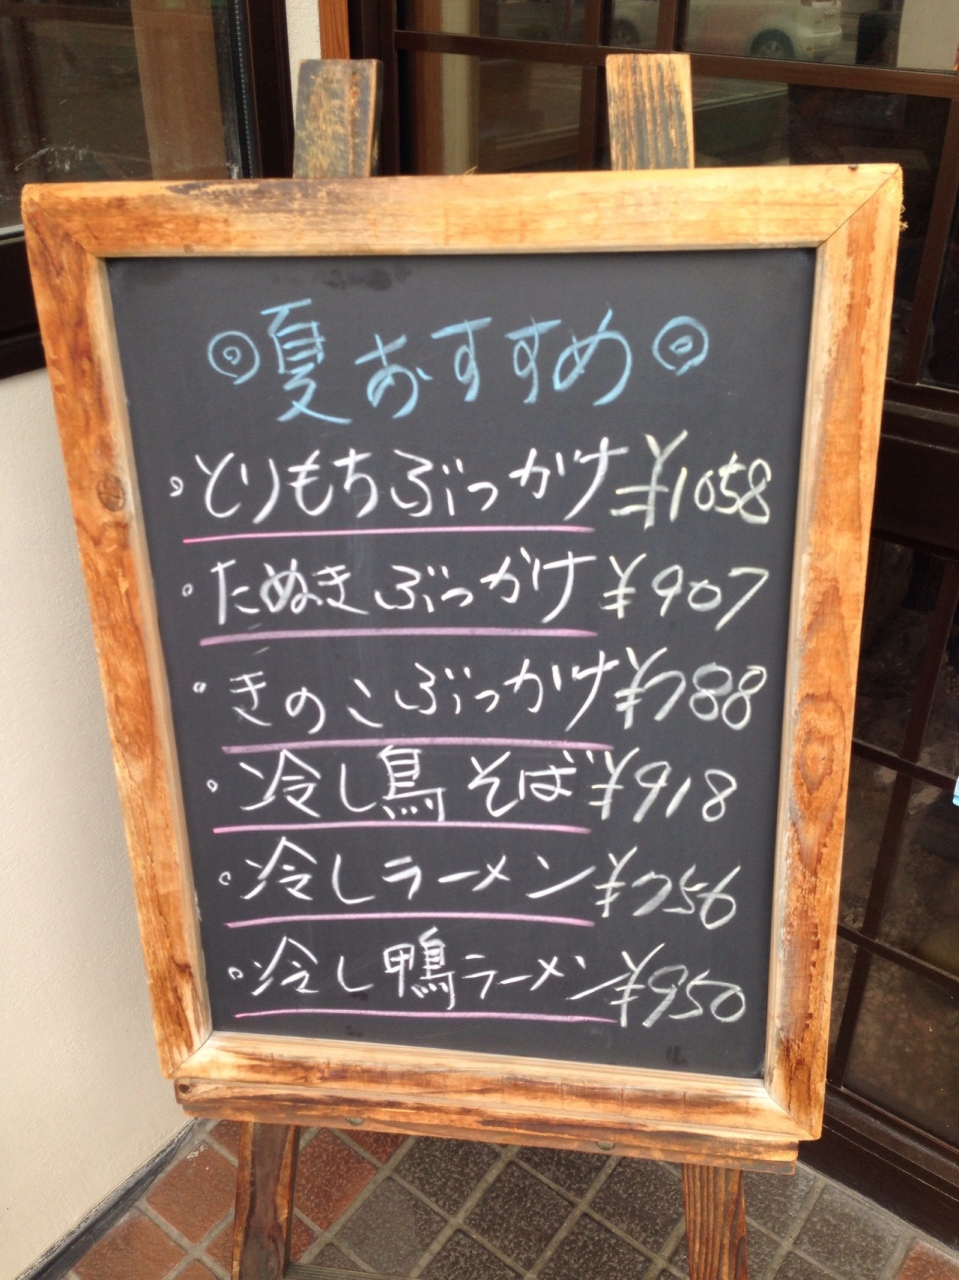 ◎夏おすすめ◎
。とりもちぶっかけ ¥1058
。たぬきぶっかけ ¥907
。きのこぶっかけ ¥788
。冷し鳥そば ¥918
。冷しラーメン ¥756
。冷し鴨ラーメン ¥950